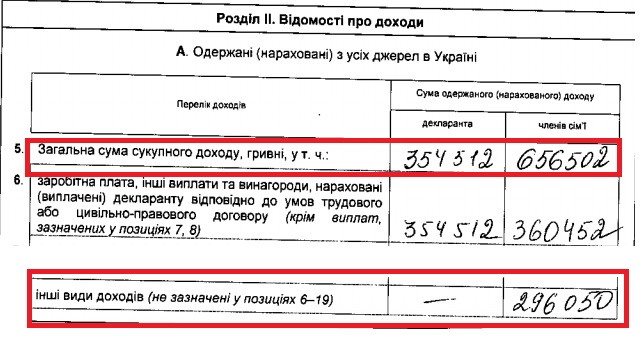 Розділ II. Відомості про доходи
А. Одержані (нараховані) з усіх джерел в Україні
Перелік доходів
Сума одержаного (нарахованого) доходу
декларанта членів сім'ї
5. Загальна сума сукупного доходу, гривні, у т. ч.: 354512 656502
6. заробітна плата, інші виплати та винагороди, нараховані
(виплачені) декларанту відповідно до умов трудового
або цивільно-правового договору (крім виплат,
зазначених у позиціях 7, 8) 354512 360452
інші види доходів (не зазначені у позиціях 6–19) — 296050